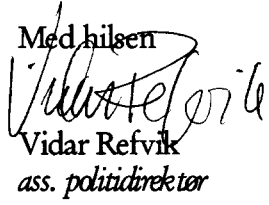 Med hilsen
Vidar Refvik
Vidar Refvik
ass. politidirektør